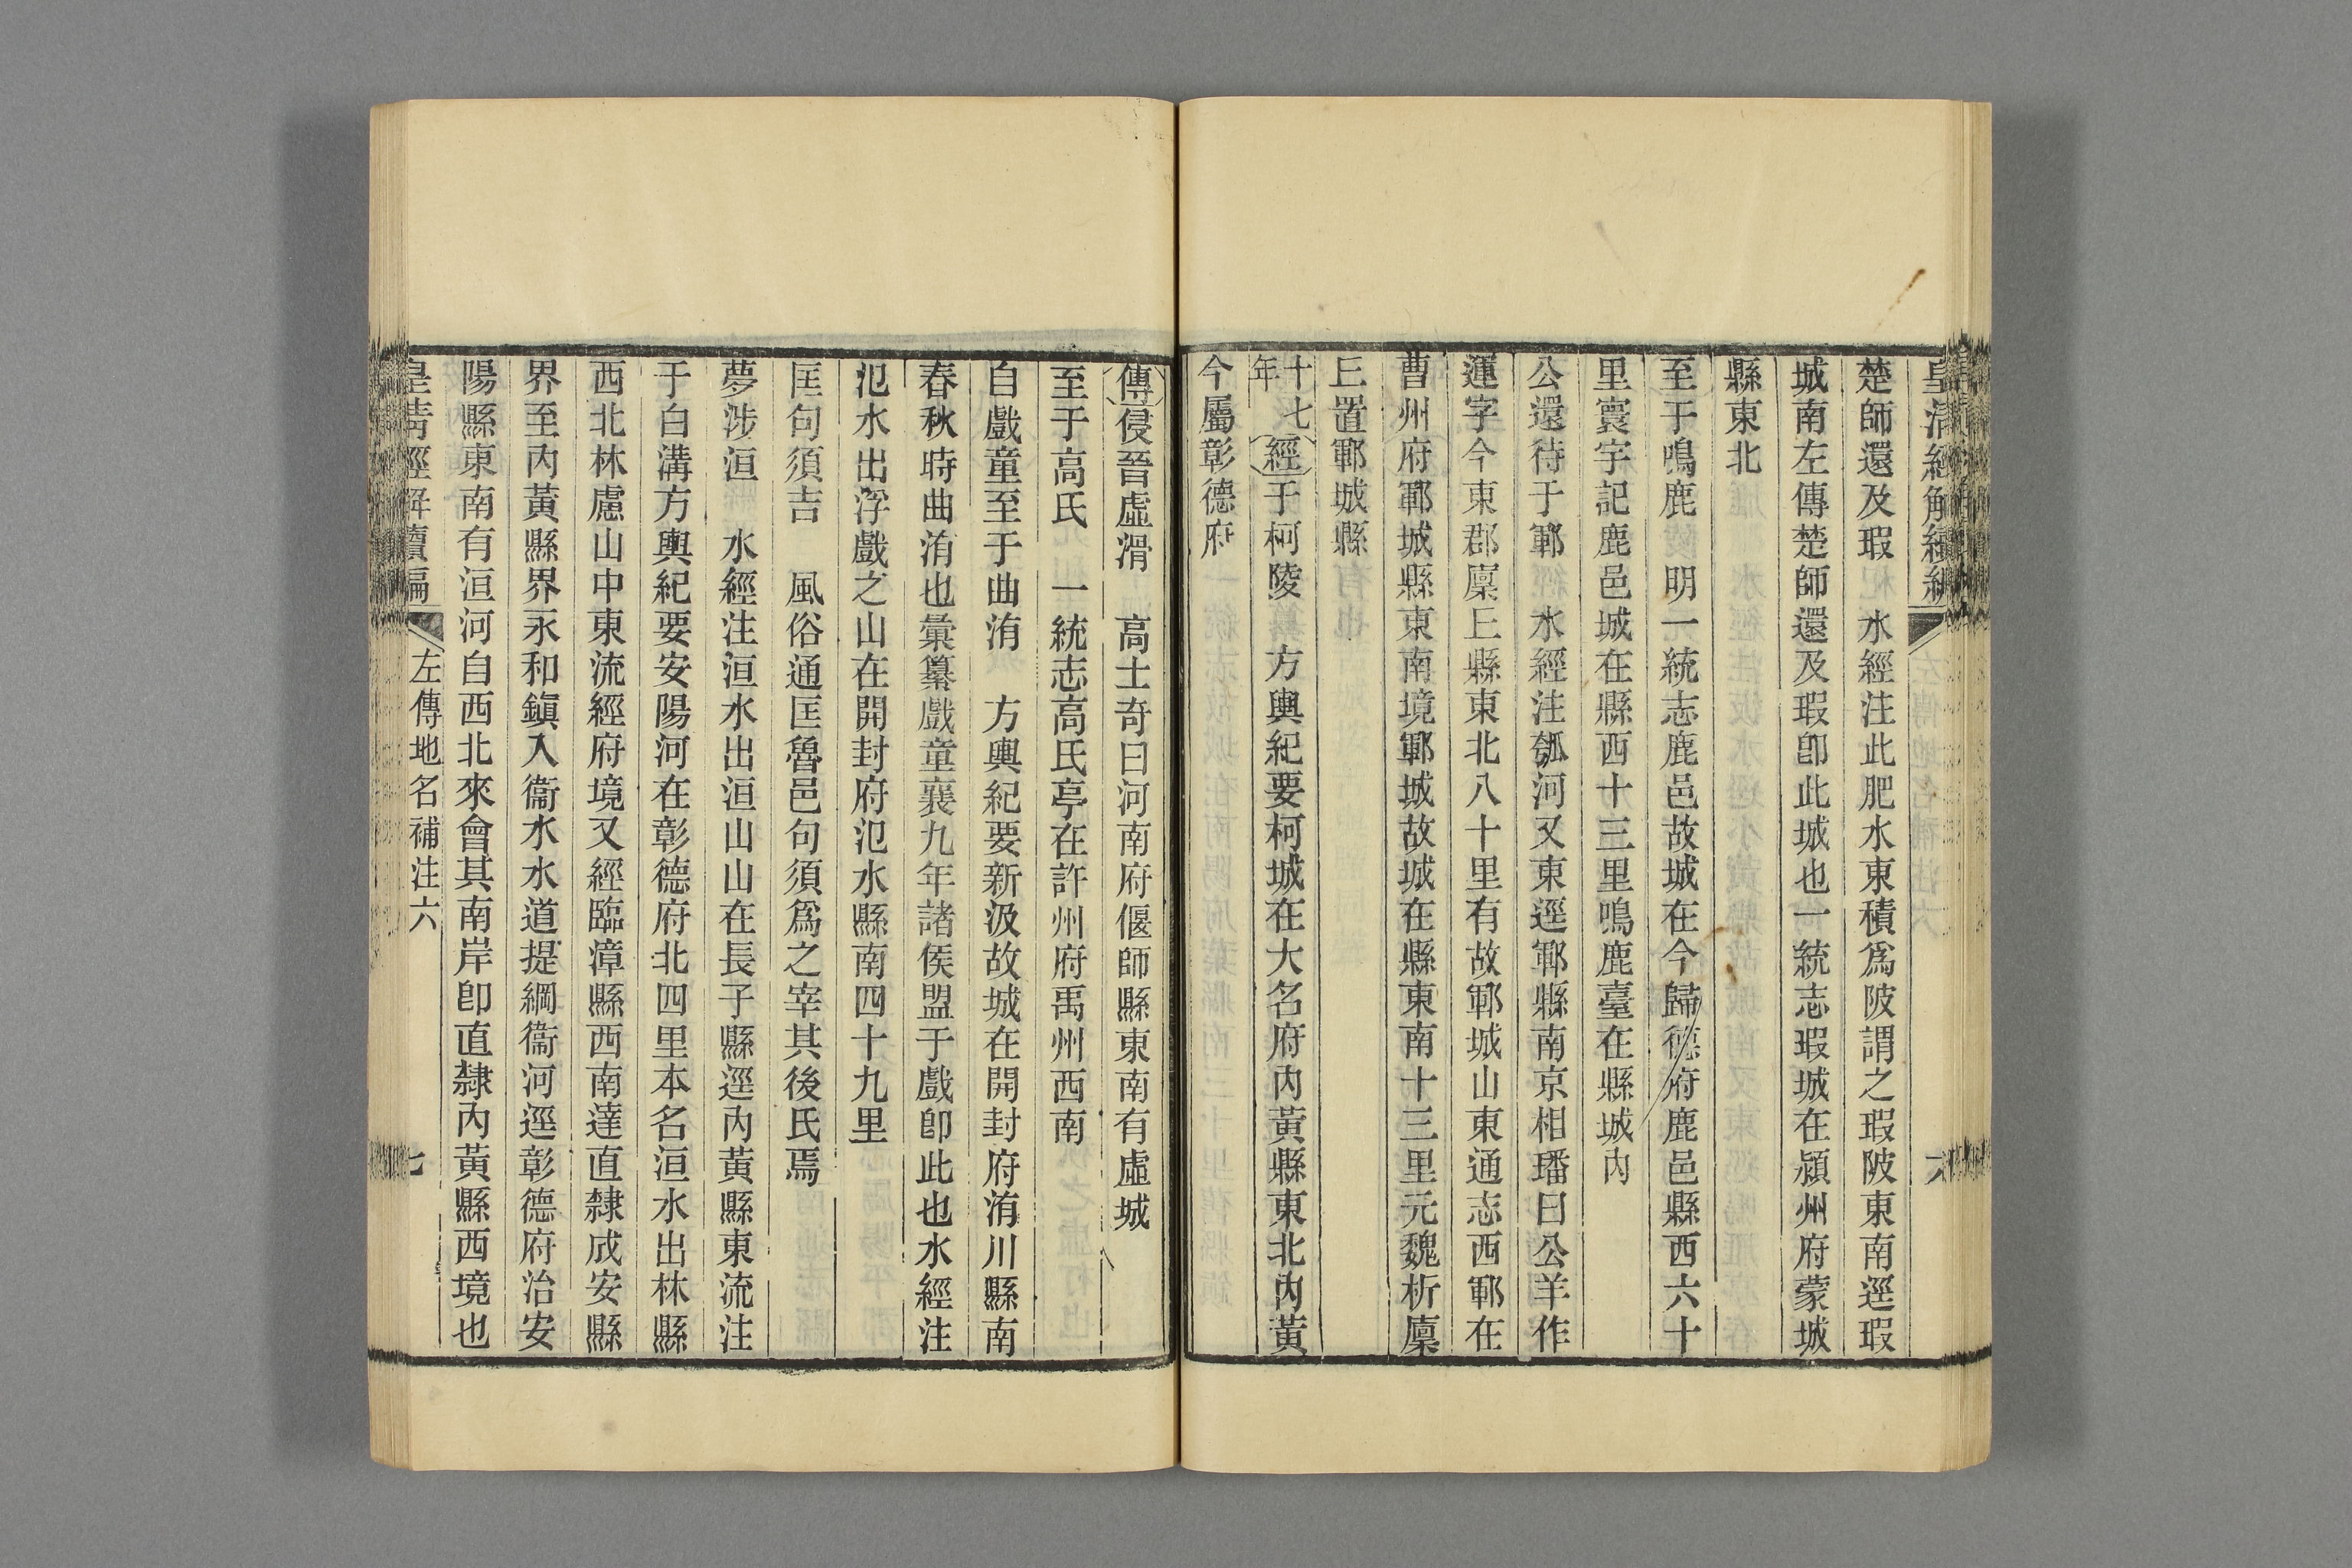 皇清經解續編
六
楚師還及瑕　水經注此肥水東積爲陂謂之瑕陂東南逕瑕
城南左傳楚師還及瑕卽此城也一統志瑕城在潁州府蒙城
縣東北
至于鳴鹿　明一統志鹿邑故城在今歸德府鹿邑縣西六十
里寰宇記鹿邑城在縣西十三里鳴鹿臺在縣城內
公還待于鄆　水經注瓠河又東逕鄆縣南京相璠曰公羊作
運字今東郡廩丘縣東北八十里有故鄆城山東通志西鄆在
曹州府鄆城縣東南境鄆城故城在縣東南十三里元魏析廩
丘置鄆城縣
十七年經于柯陵　方輿紀要柯城在大名府內黃縣東北內黃
今屬彰德府
傳侵晉虛滑　高士奇曰河南府偃師縣東南有虛城
至于高氏　一統志高氏亭在許州府禹州西南
自戲童至于曲洧　方輿紀要新汲故城在開封府洧川縣南
春秋時曲洧也彙纂戲童襄九年諸侯盟于戲卽此也水經注
汜水出浮戲之山在開封府汜水縣南四十九里
匡句須吉　風俗通匡魯邑句須爲之宰其後氏焉
夢涉洹　水經注洹水出洹山山在長子縣逕內黃縣東流注
于白溝方輿紀要安陽河在彰德府北四里本名洹水出林縣
西北林慮山中東流經府境又經臨漳縣西南達直隸成安縣
界至內黃縣界永和鎭入衞水水道提綱衞河逕彰德府治安
陽縣東南有洹河自西北來會其南岸卽直隸內黃縣西境也
皇清經解續編
左傳地名補注六
七